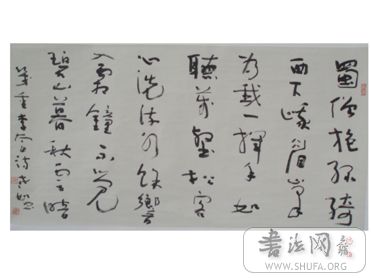 蜀僧抱绿绮
西下峨眉峰
为我一挥手如
听万壑松客
心洗流水余响
入霜钟不觉
碧山暮秋云暗
几重李白诗
书法网
WWW.SHUFA.ORG